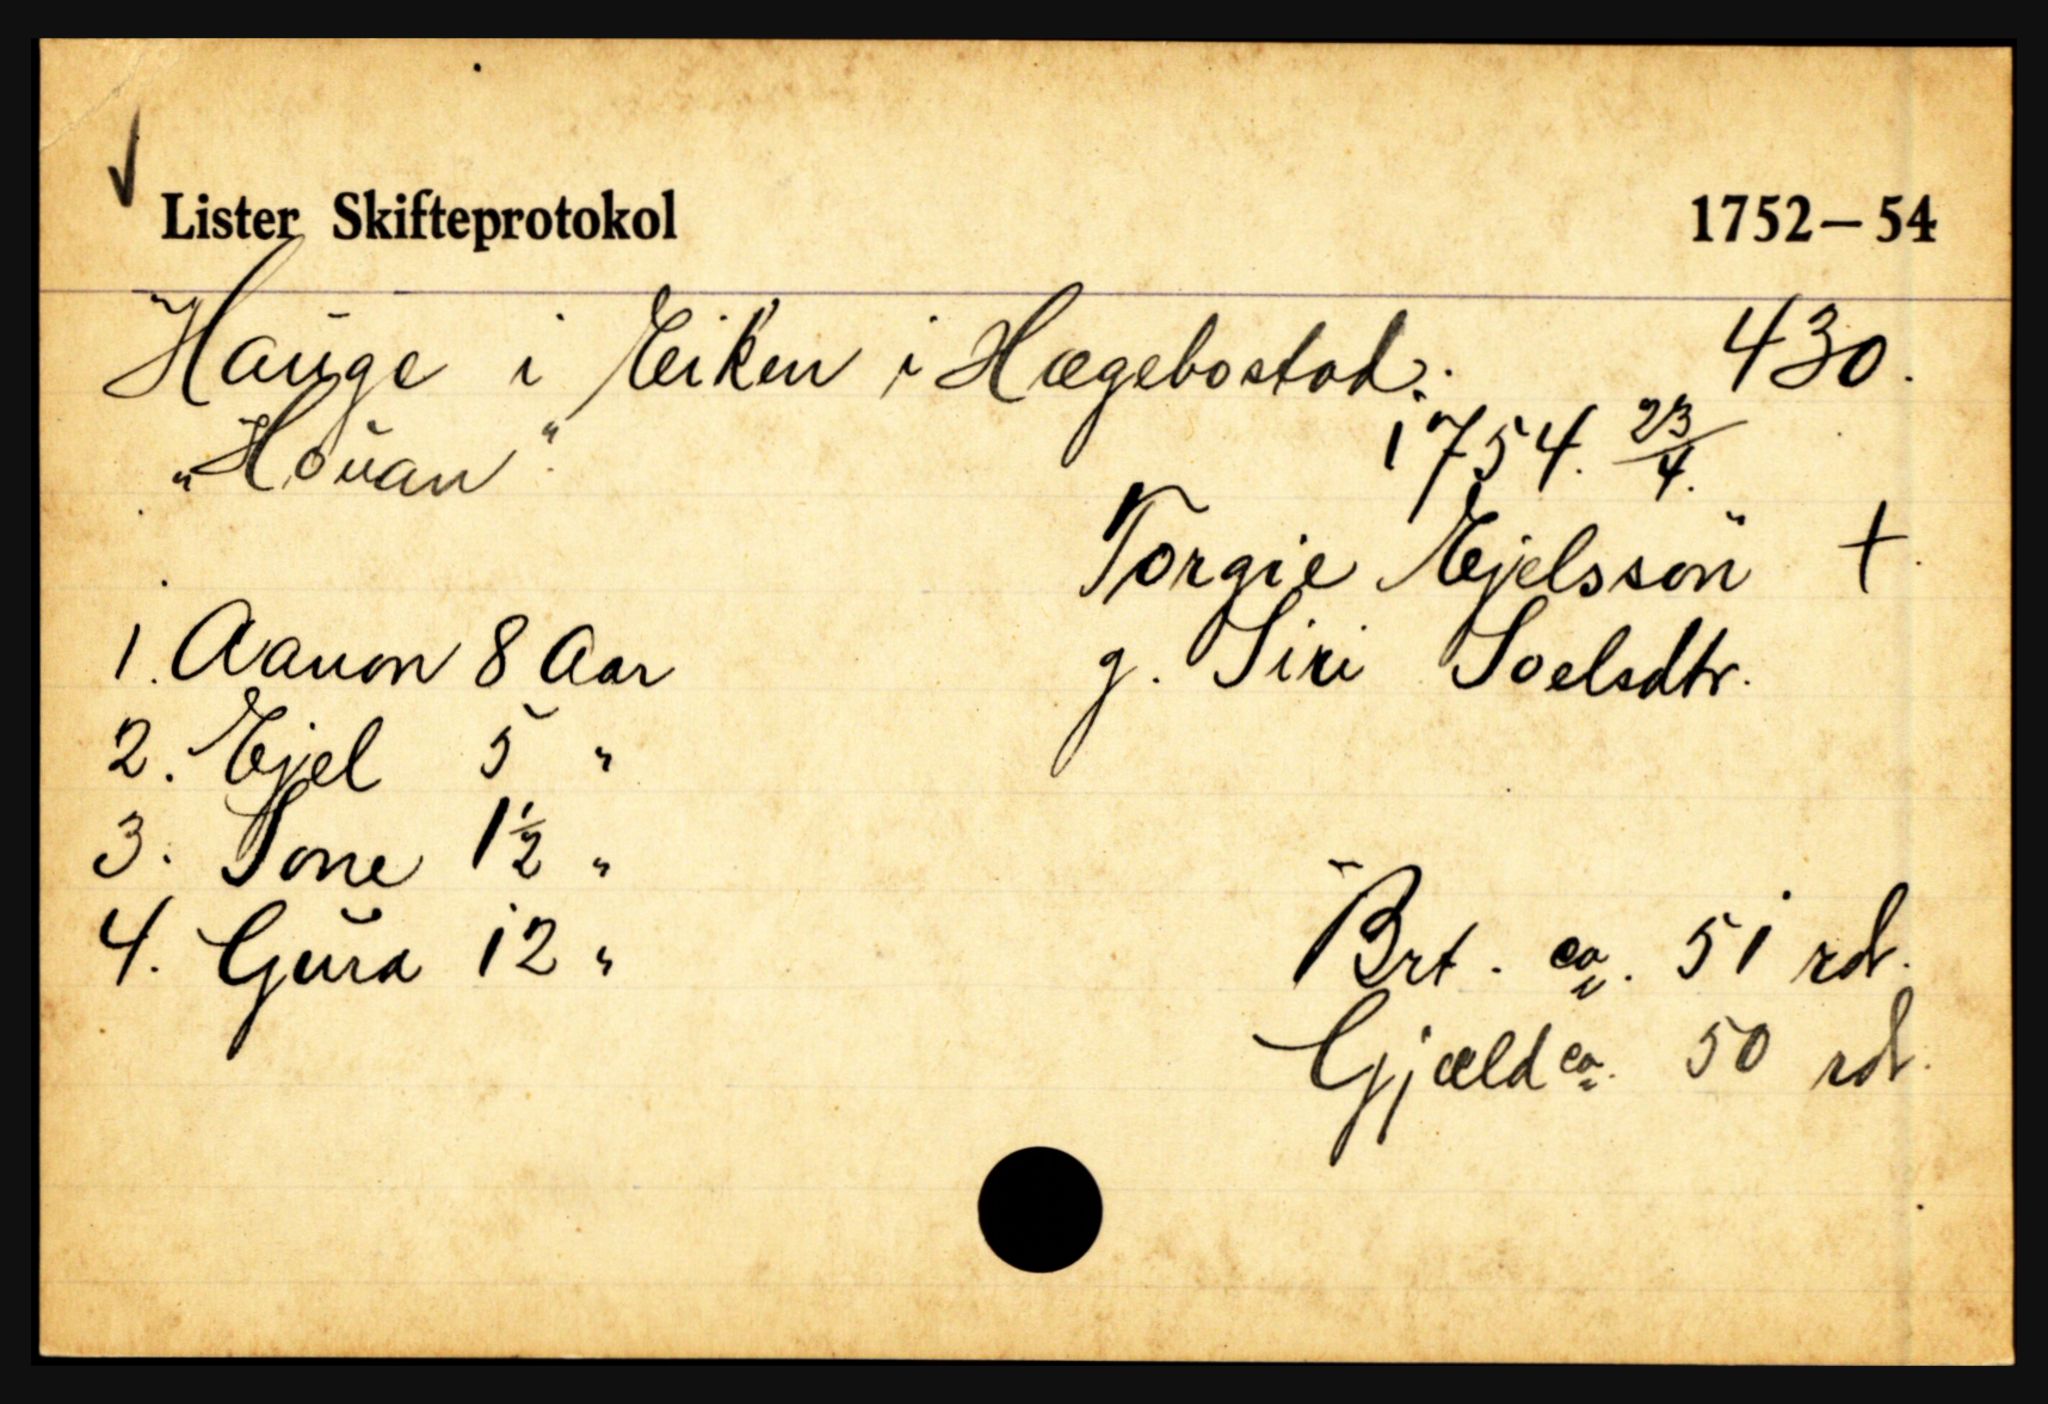 ✓ Lister Skifteprotokol 1752—54
Hauge i Eiken i Hægebostad. 430.
„Houan“ 1754. 23/4.
Torgie Ejelssön +
g. Siri Soelsdtr.
1. Aanon 8 Aar
2. Ejel 5 "
3. Tone 1½ "
4. Gura 12 "
Brt. ca. 51 rd.
Gjæld ca. 50 rd.